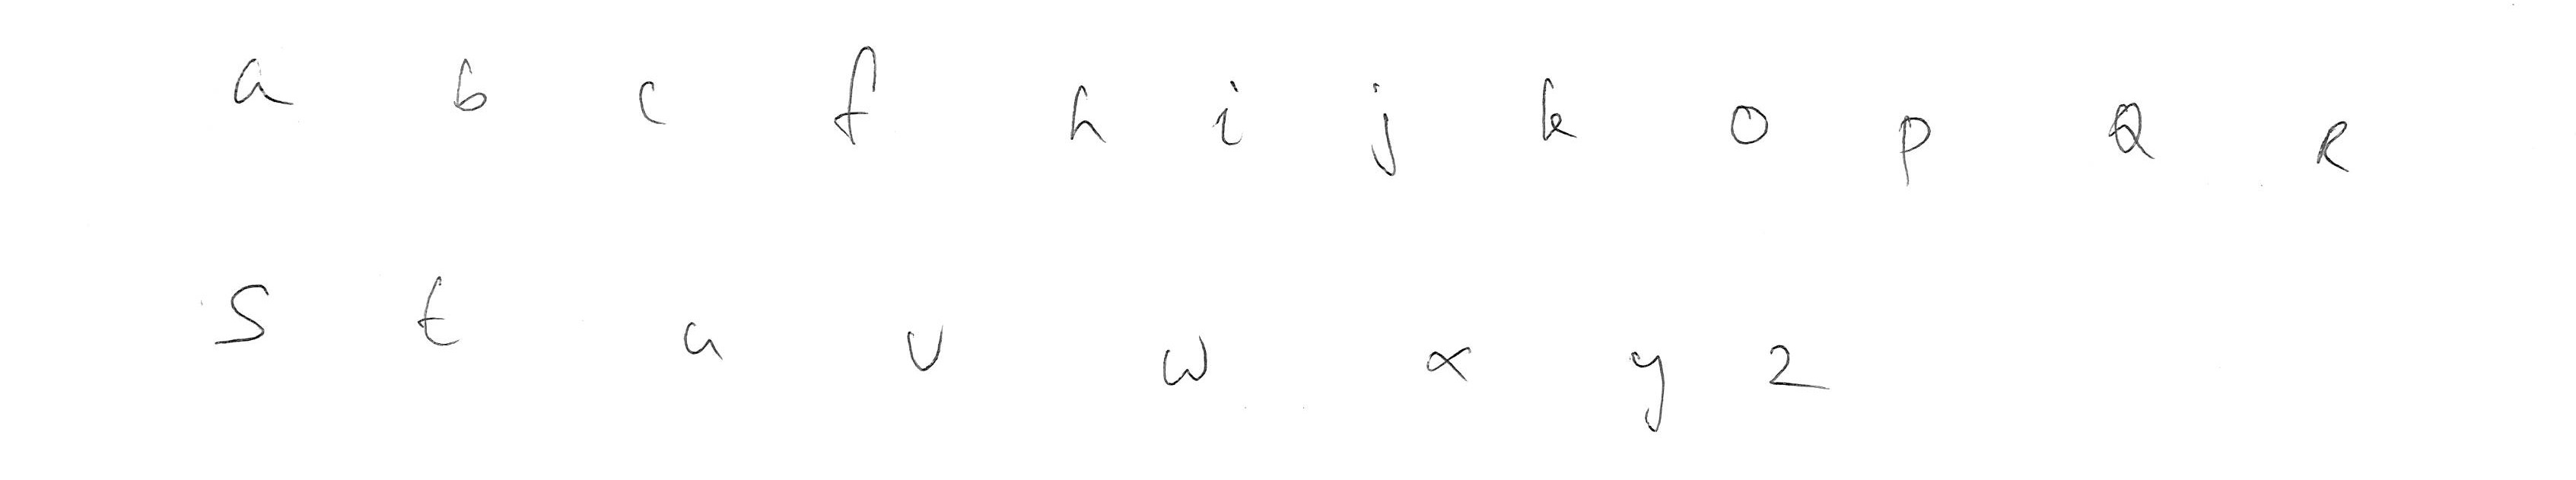 a b c f h i j k o p Q R
S t u v w x y z